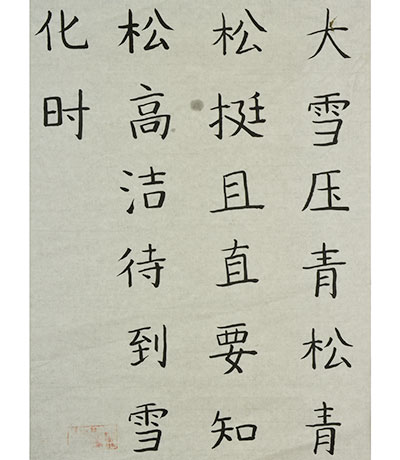 大雪压青松青
松挺且直要知
松高洁待到雪
化时